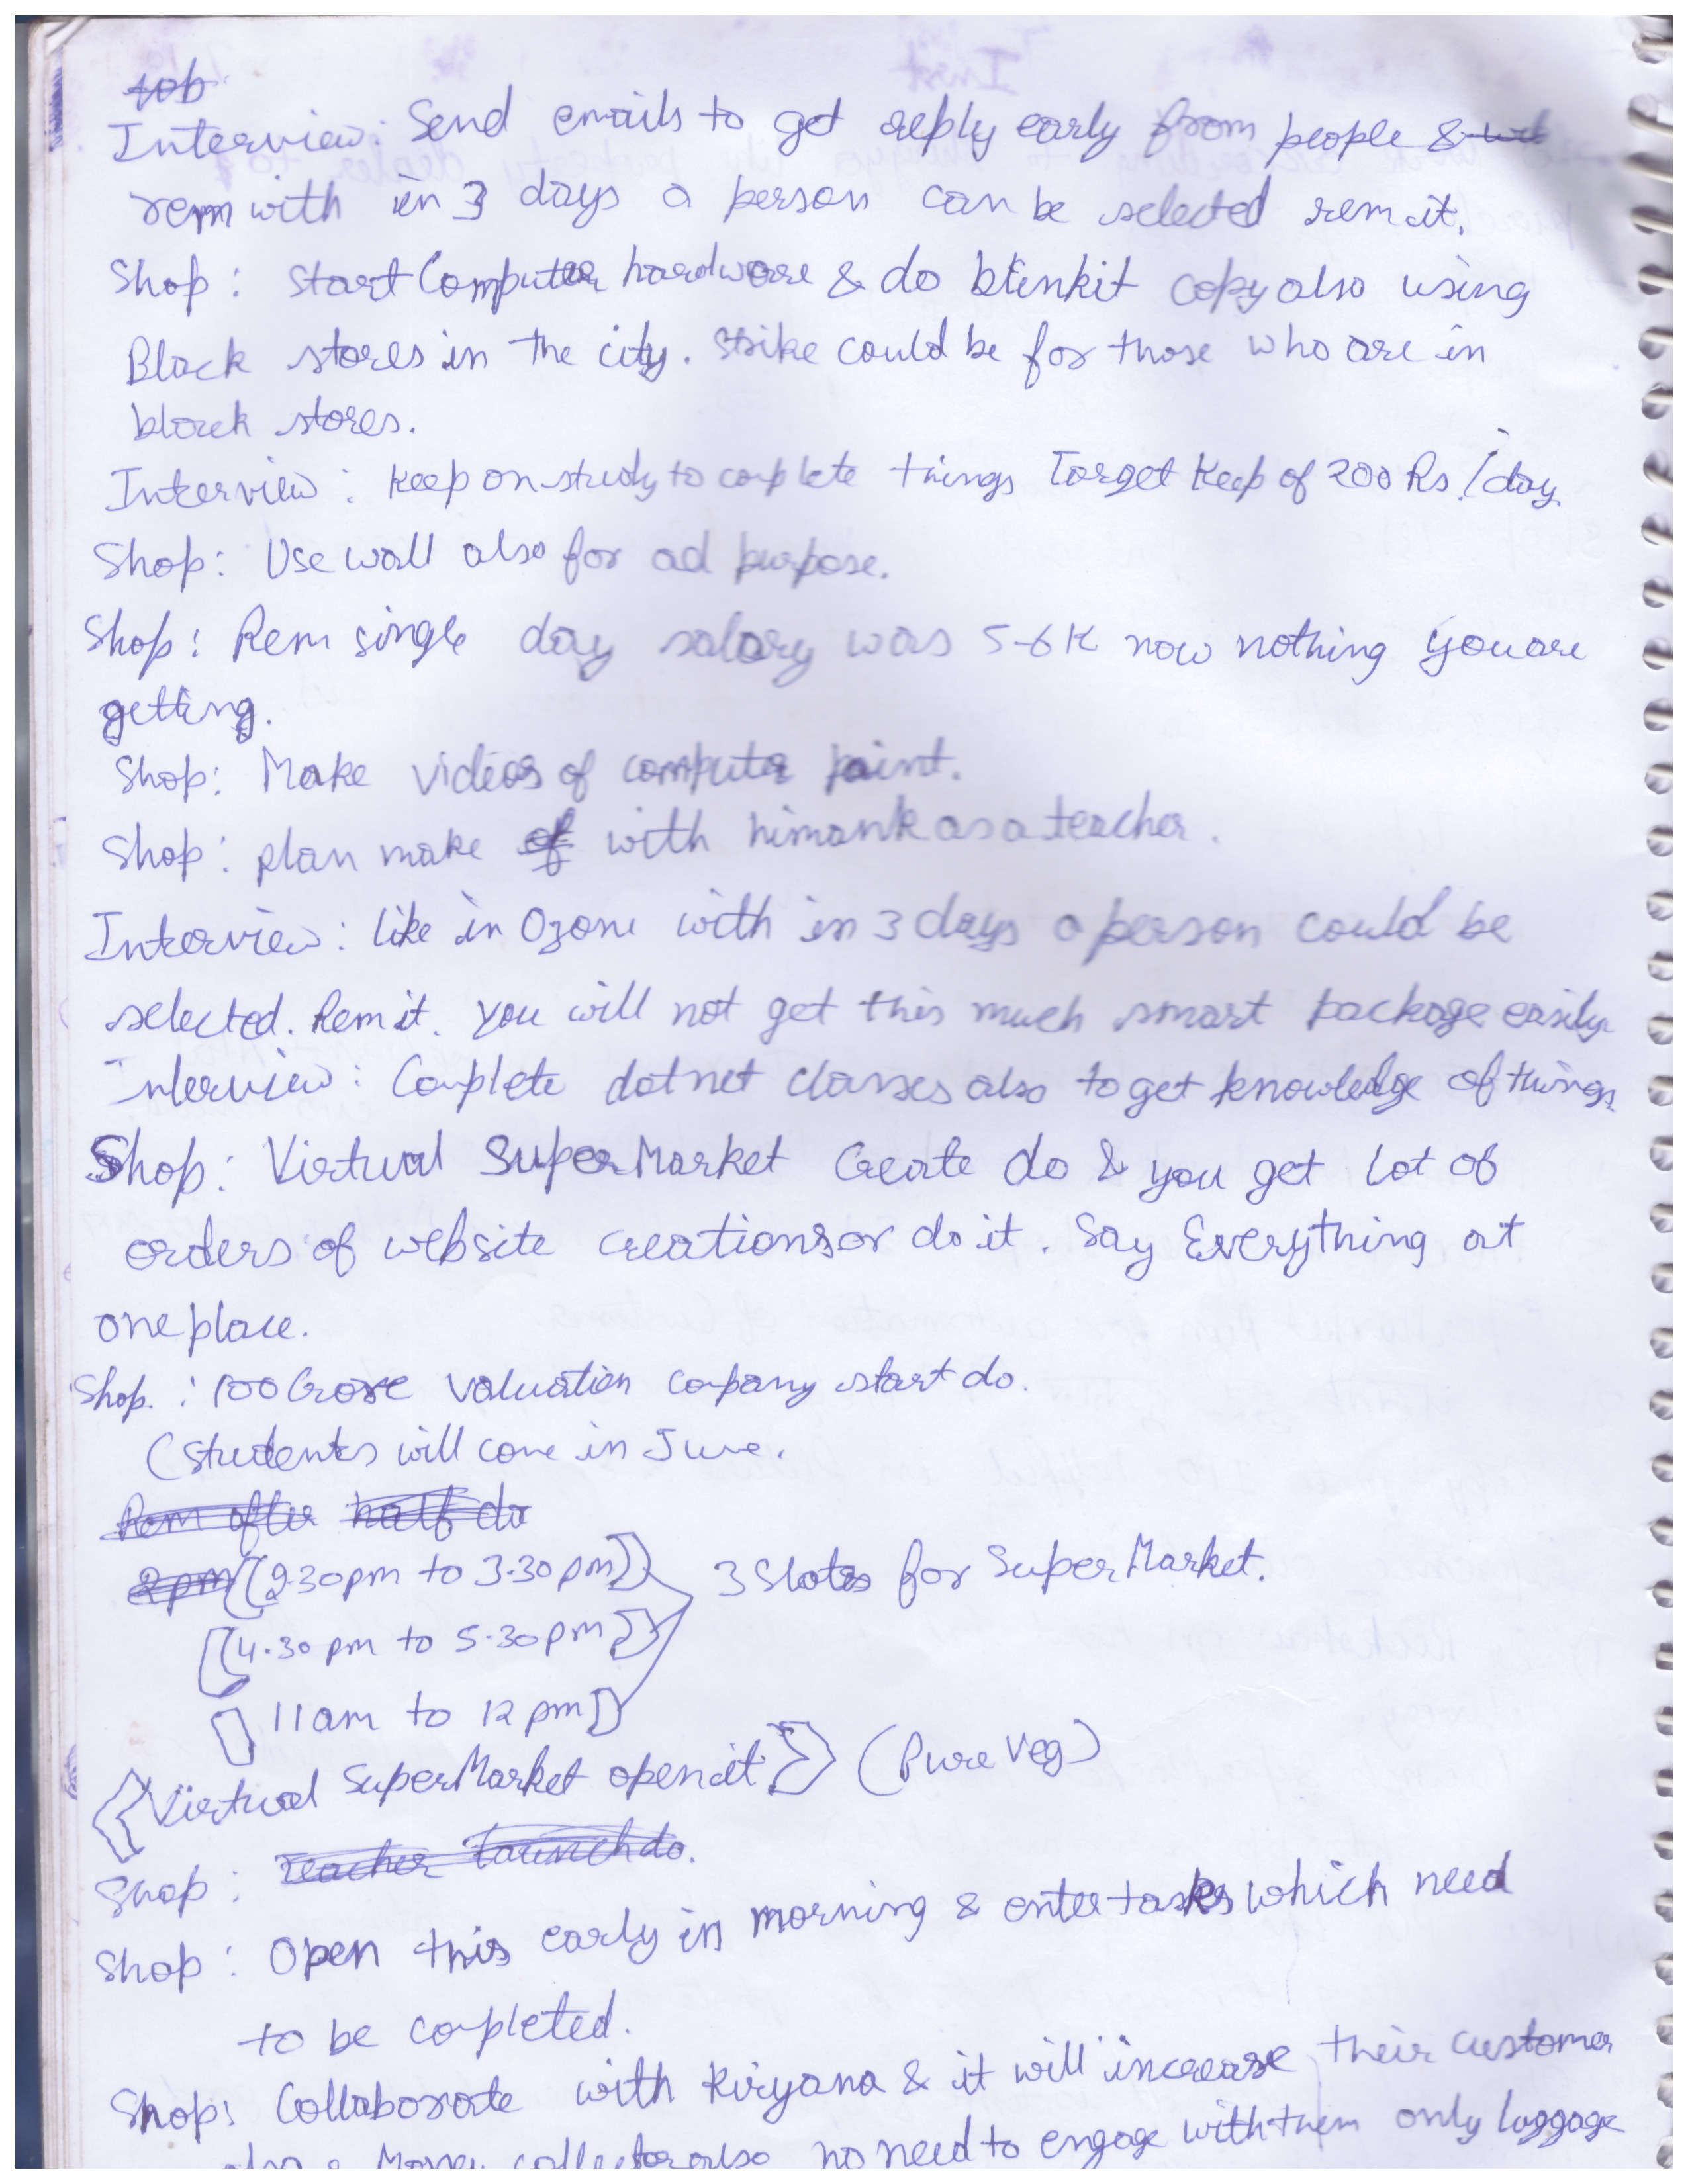 Job
Interview: Send emails to get reply early from people &
rem with in 3 days a person can be selected rem it.
Shop: Start Computer hardware & do blinkit copy also using
Black stores in the city. Strike could be for those who are in
black stores.
Interview: Keep on study to coplete things Target Keep of 200 Rs./day.
Shop: Use wall also for ad purpose.
Shop: Rem single day salary was 5-6K now nothing you are
getting.
Shop: Make videos of computer paint.
Shop: plan make of with himank as a teacher.
Interview: like in Ozone with in 3 days a person could be
selected. Rem it. You will not get this much smart package easily
Interview: Coplete dotnet classes also to get knowledge of things
Shop: Virtual SuperMarket Create do & you get lot of
orders of website creations or do it. Say Everything at
one place.
Shop: 100 Crore valuation copany start do.
(Students will come in June.
Rem after half do
2pm [(2.30pm to 3.30pm)] 3 Slots for SuperMarket.
[(4.30 pm to 5.30pm)]
[11am to 12pm]
{Virtual SuperMarket open it} (Pure Veg)
Shop: Teacher launch do.
Shop: Open this early in morning & enter tasks which need
to be copleted.
Shop: Collaborate with Kiryana & it will increase their customer
also & Money collector also no need to engage with them only luggage